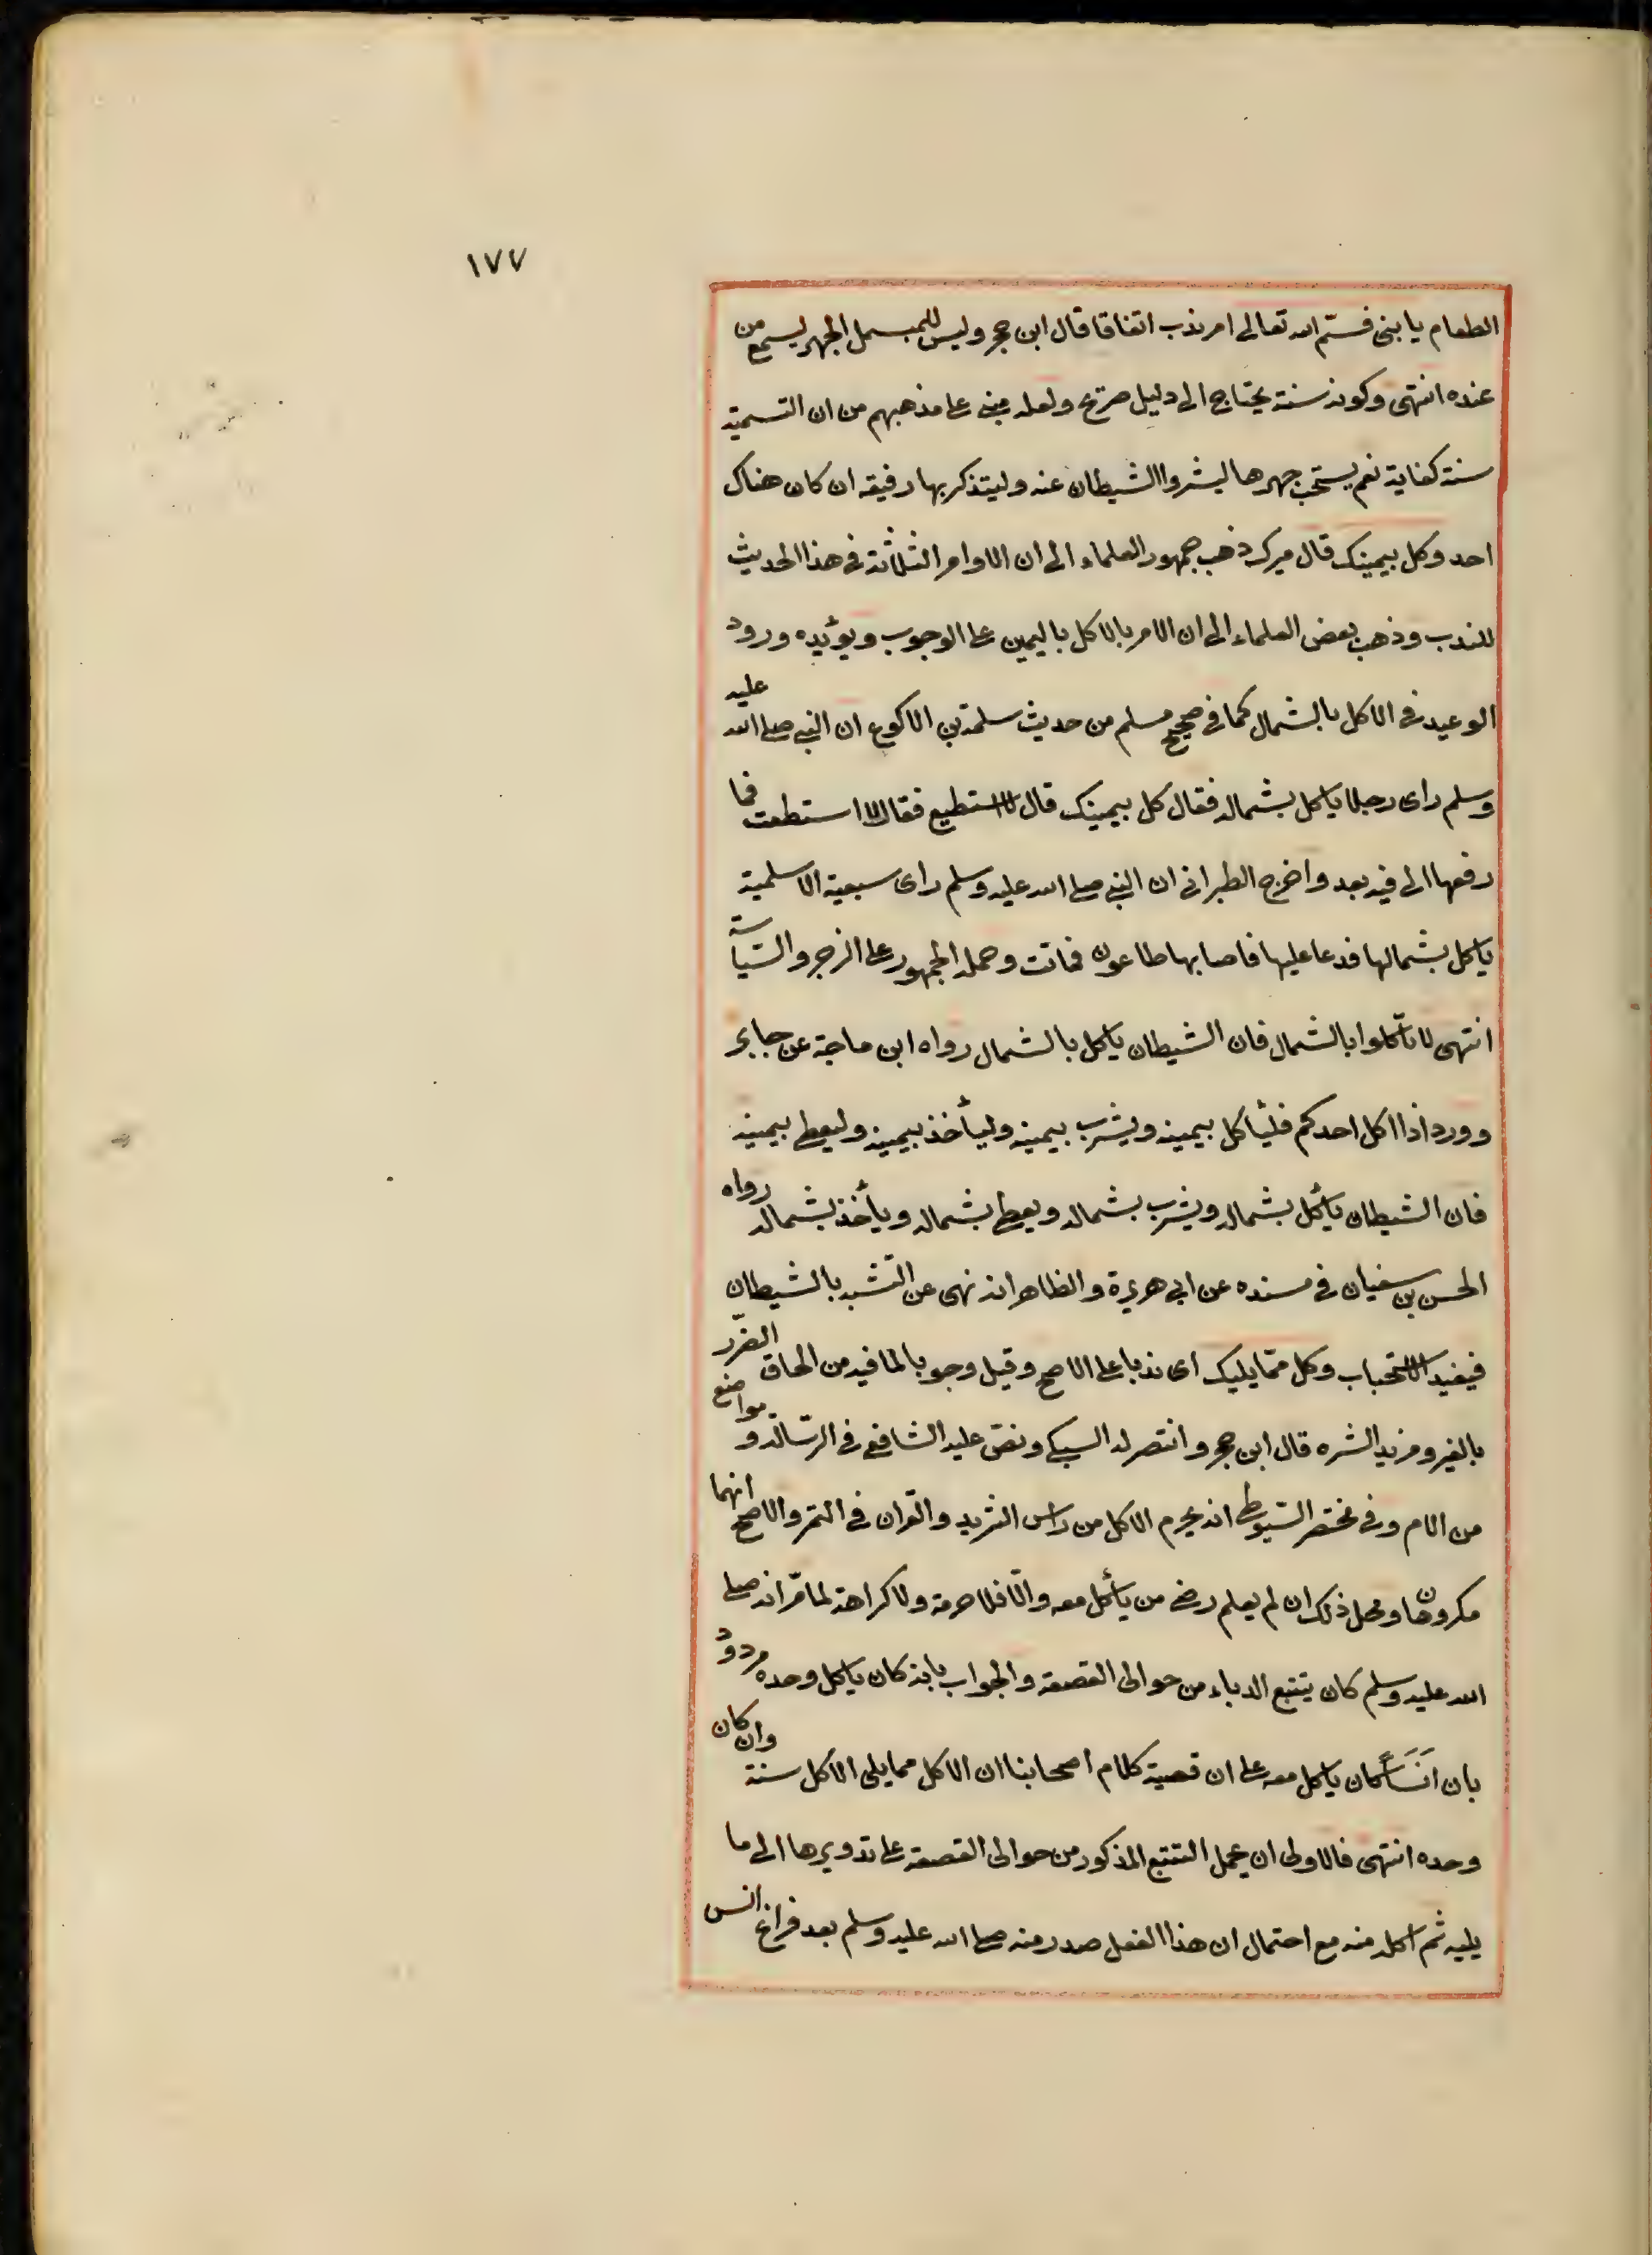 ١٧٧
الطعام يا بنى فسمّ الله تعالى امر ندب اتفاقا قال ابن حجر وليس للمبسمل الجهر ليسمع من
عنده انتهى وكونه سنة يحتاج الى دليل صريح ولعله مبنى على مذهبهم من ان التسمية
سنة كفاية نعم يستحب جهرها ليشرد الشيطان عنه وليتذكر بها رفيقه ان كان هناك
احد وكل بيمينك قال ميرك ذهب جمهور العلماء الى ان الاوامر الثلاثة فى هذا الحديث
للندب وذهب بعض العلماء الى ان الامر بالاكل باليمين على الوجوب ويؤيده ورود
الوعيد فى الاكل بالشمال كما فى صحيح مسلم من حديث سلمة بن الاكوع ان النبى صلى الله عليه
وسلم راى رجلا ياكل بشماله فقال كل بيمينك قال لا استطيع فقال لا استطعت فما
رفعها الى فيه بعد واخرج الطبرانى ان النبى صلى الله عليه وسلم راى سبيعة الاسلمية
ياكل بشمالها فدعا عليها فاصابها طاعون فماتت وحمله الجمهور على الزجر والسّياسة
انتهى لا تأكلوا بالشمال فان الشيطان ياكل بالشمال رواه ابن ماجة عن جابر
وورد اذا اكل احدكم فليأكل بيمينه ويشرب بيمينه وليأخذ بيمينه وليعط بيمينه
فان الشيطان يأكل بشماله ويشرب بشماله ويعطى بشماله ويأخذ بشماله رواه
الحسن بن سفيان فى مسنده عن ابى هريرة والظاهر انه نهى عن التّشبه بالشيطان
فيفيد الاستحباب وكل ممّا يليك اى ندبا على الاصح وقيل وجوبا لما فيه من الحاق الضرر
بالغير ومزيد الشره قال ابن حجر وانتصر له السبكى ونصّ عليه الشافعى فى الرّسالة و مواضع
من الام وفى مختصر السّيوطى انه يحرم الاكل من راس الثريد والقران فى التمر والاصح انهما
مكروهان ومحل ذلك ان لم يعلم رضى من يأكل معه والّا فلا حرمة ولا كراهة لما مرّ انه صلى
الله عليه وسلم كان يتتبع الدباء من حوالى القصعة والجواب بانه كان ياكل وحده مردود
بان انَسَاً كان ياكل معه على ان قضية كلام اصحابنا ان الاكل مما يلى الاكل سنة وان كان
وحده انتهى فالاولى ان يحمل التتبع المذكور من حوالى القصعة على تدويرها الى ما
يليه ثم اكله منه مع احتمال ان هذا الفعل صدر منه صلى الله عليه وسلم بعد فراغ انس